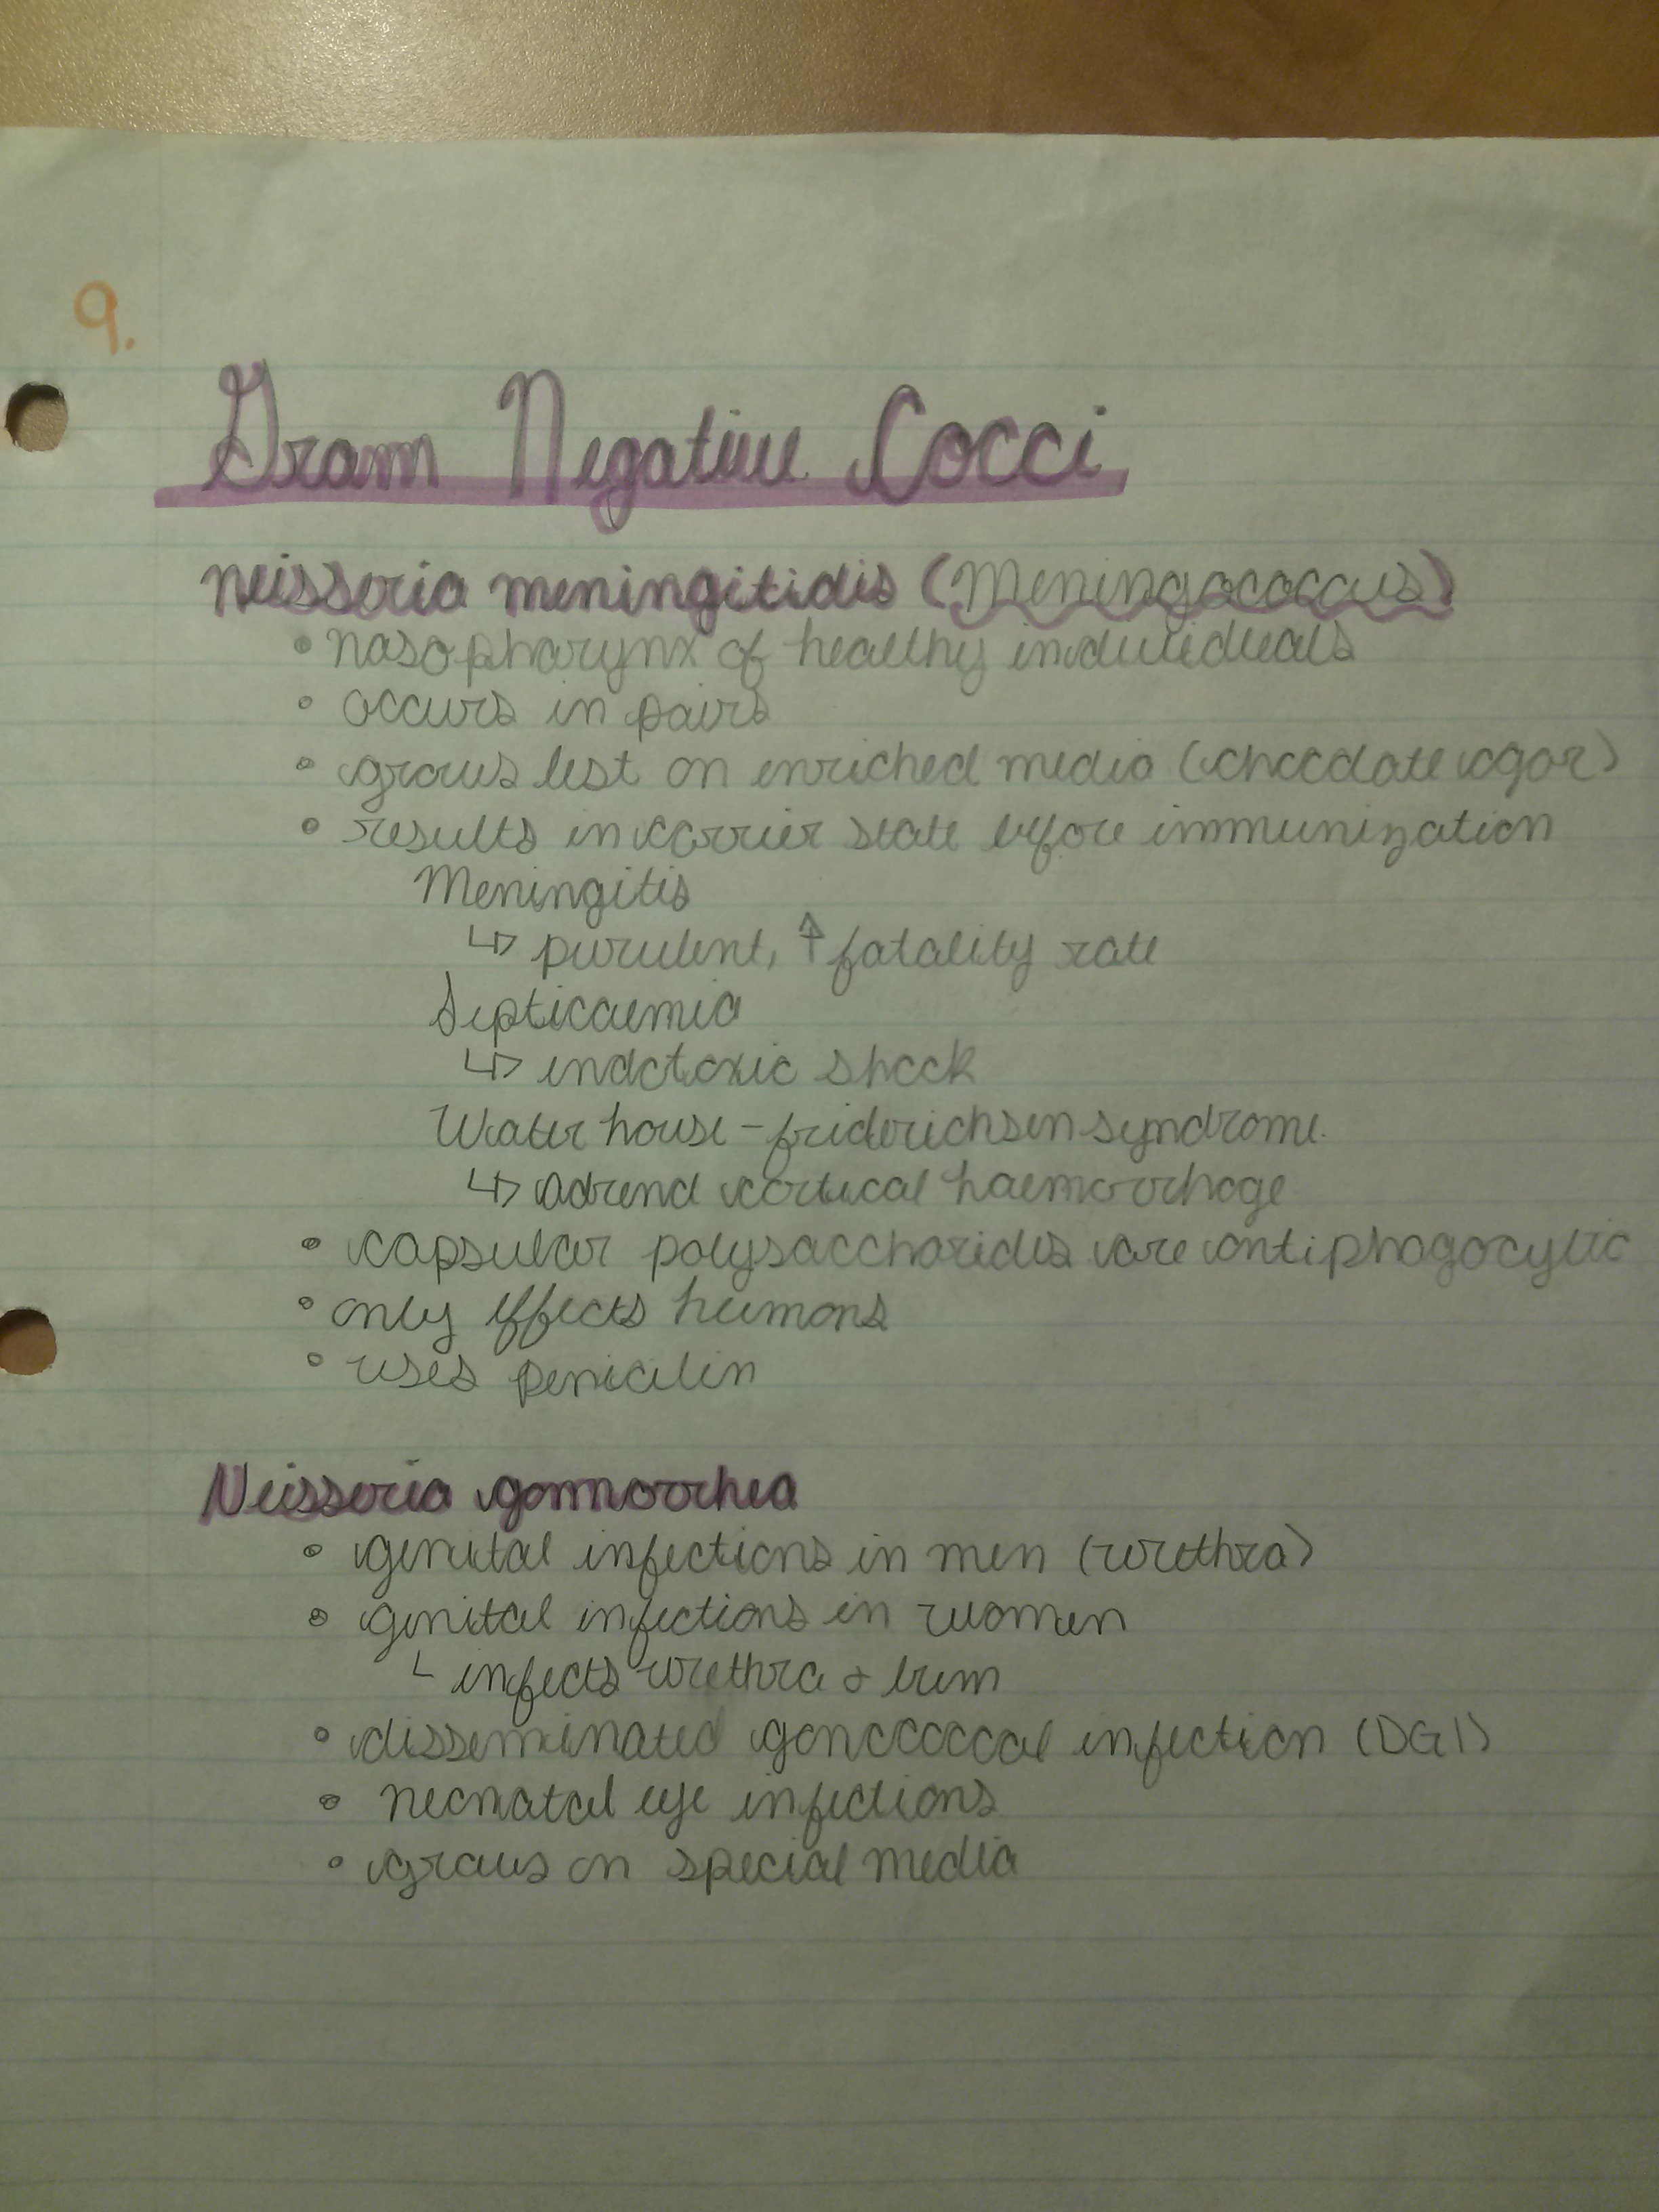 9.
Gram Negative Cocci
Neisseria meningitidis (Meningococcus)
• nasopharynx of healthy individuals
• occurs in pairs
• grows best on enriched media (chocolate agar)
• results in carrier state before immunization
Meningitis
↳ purulent, ↑ fatality rate
Septicaemia
↳ endotoxic shock
Waterhouse-friderichsen syndrome
↳ adrenal cortical haemorrhage
• capsular polysaccharides are antiphagocytic
• only effects humans
• uses penicilin
Neisseria gonnorrhea
• genital infections in men (urethra)
• genital infections in women
└ infects urethra &
• disseminated gonococcal infection (DGI)
• neonatal eye infections
• grows on special media